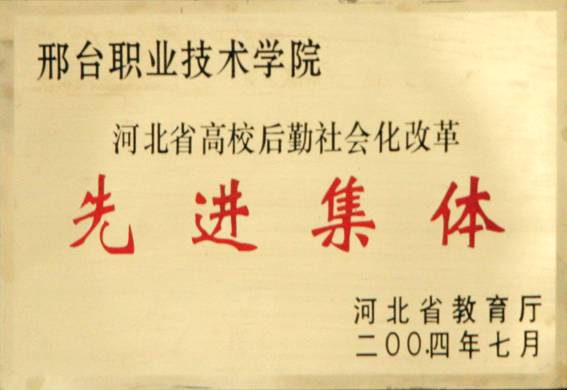 邢台职业技术学院
河北省高校后勤社会化改革
先进集体
河北省教育厅
二〇〇四年七月